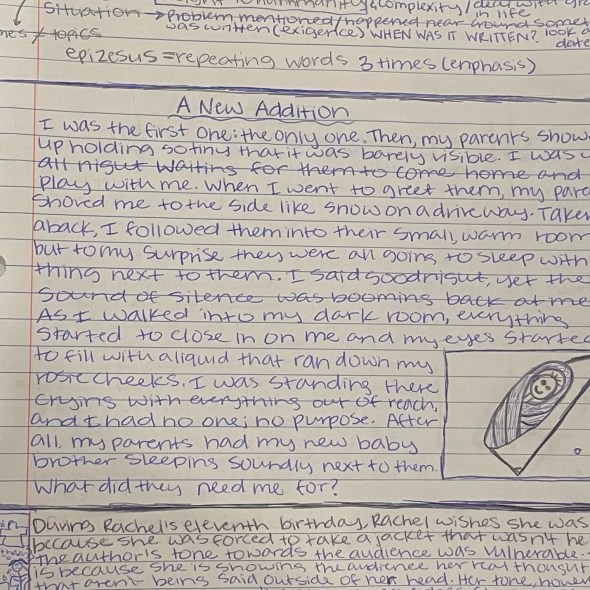 Situation → Problem mentioned/happened near around
in life
was written (exigence) WHEN WAS IT WRITTEN? look
date
topics
epizesus = repeating words 3 times (enphasis)
A New Addition
I was the first one: the only one. Then, my parents show
up holding so tiny that it was barely visible. I was
all night waiting for them to come home and
play with me. When I went to greet them, my
shoved me to the side like snow on a driveway. Taken
aback, I followed them into their small, warm room
but to my surprise they were all going to sleep with
thing next to them. I said goodnight, yet the
sound of silence was booming back at me
As I walked into my dark room, everything
started to close in on me and my eyes started
to fill with a liquid that ran down my
rosie cheeks. I was standing there
crying with everything out of reach,
and I had no one; no purpose. After
all, my parents had my new baby
brother sleeping soundly next to them.
What did they need me for?
During Rachel's eleventh birthday, Rachel wishes she was
because she was forced to take a jacket that wasn't he
The author's tone towards the audience was vulnerable.
is because she is showing the audience her real thought
that aren't being said outside of her head. Her tone, howev